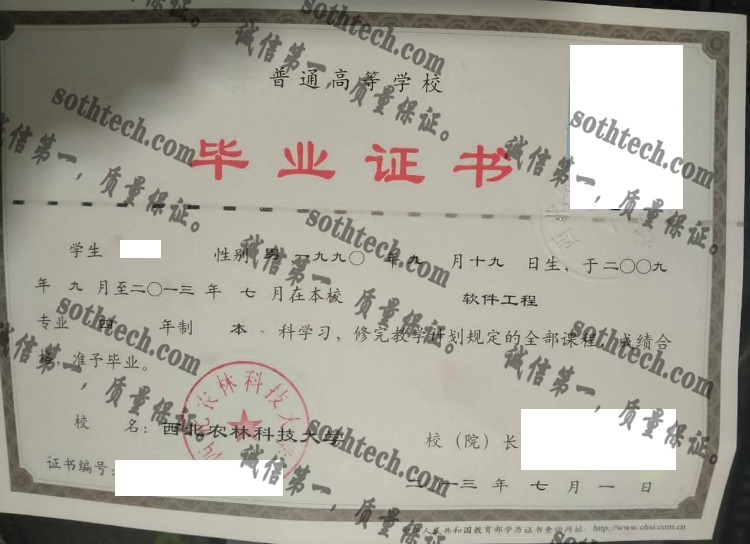 普通高等学校
毕业证书
学生 性别 男 一九九〇 年 九 月十九 日生，于二〇〇九
年 九 月至二〇一三 年 七 月在本校 软件工程
专业 四 年制 本 科学习，修完教学计划规定的全部课程，成绩合
格，准予毕业。
校 名：西北农林科技大学 校（院）长
证书编号：
二〇一三 年 七 月 一 日
中华人民共和国教育部学历证书查询网址：http://www.chsi.com.cn
西北农林科技大学
sothtech.com
诚信第一，质量保证。
sothtech.com
诚信第一，质量保证。
sothtech.com
诚信第一，质量保证。
sothtech.com
诚信第一，质量保证。
sothtech.com
诚信第一，质量保证。
sothtech.com
诚信第一，质量保证。
sothtech.com
诚信第一，质量保证。
sothtech.com
诚信第一，质量保证。